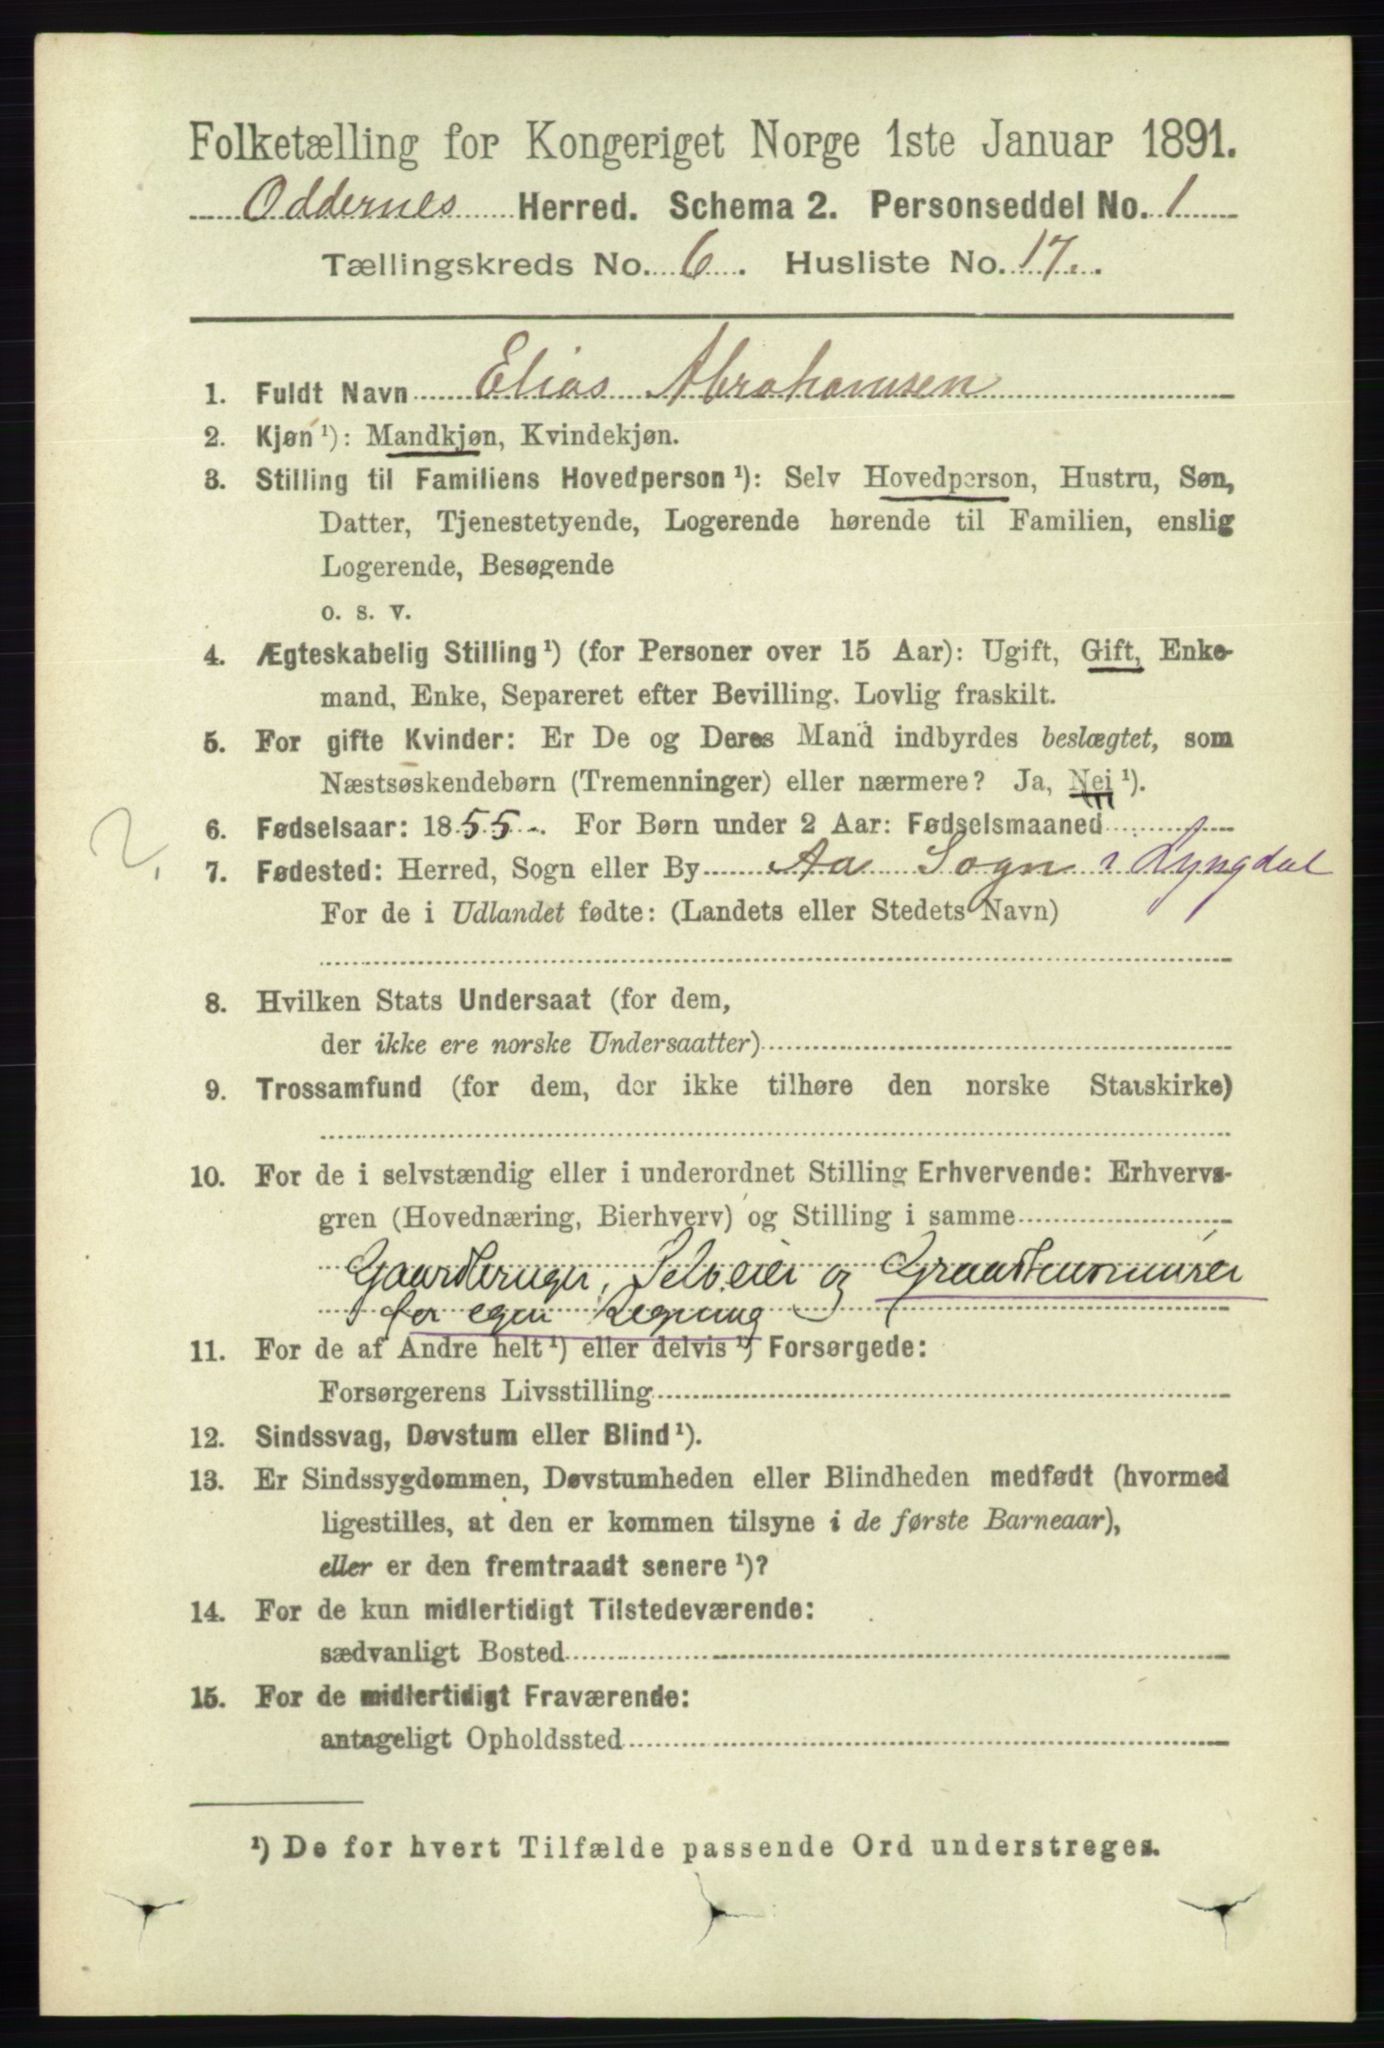 Folketælling for Kongeriget Norge 1ste Januar 1891.
Oddernes Herred. Schema 2. Personseddel No. 1
Tællingskreds No. 6. Husliste No. 17.
1. Fuldt Navn Elias Abrahamsen
2. Kjøn¹): Mandkjøn, Kvindekjøn.
3. Stilling til Familiens Hovedperson¹): Selv Hovedperson, Hustru, Søn,
Datter, Tjenestetyende, Logerende hørende til Familien, enslig
Logerende, Besøgende
o. s. v.
4. Ægteskabelig Stilling¹) (for Personer over 15 Aar): Ugift, Gift, Enke-
mand, Enke, Separeret efter Bevilling. Lovlig fraskilt.
5. For gifte Kvinder: Er De og Deres Mand indbyrdes beslægtet, som
Næstsøskendebørn (Tremenninger) eller nærmere? Ja, Nei¹).
2.
6. Fødselsaar: 1855. For Børn under 2 Aar: Fødselsmaaned
7. Fødested: Herred, Sogn eller By Aa Sogn i Lyngdal
For de i Udlandet fødte: (Landets eller Stedets Navn)
8. Hvilken Stats Undersaat (for dem,
der ikke ere norske Undersaatter)
9. Trossamfund (for dem, der ikke tilhøre den norske Statskirke)
10. For de i selvstændig eller i underordnet Stilling Erhvervende: Erhvervs-
gren (Hovednæring, Bierhverv) og Stilling i samme
Gaardbruger, Selveier og Graastensmurer
for egen Regning
11. For de af Andre helt¹) eller delvis¹) Forsørgede:
Forsørgerens Livsstilling
12. Sindssvag, Døvstum eller Blind¹).
13. Er Sindssygdommen, Døvstumheden eller Blindheden medfødt (hvormed
ligestilles, at den er kommen tilsyne i de første Barneaar),
eller er den fremtraadt senere¹)?
14. For de kun midlertidigt Tilstedeværende:
sædvanligt Bosted
15. For de midlertidigt Fraværende:
antageligt Opholdssted
¹) De for hvert Tilfælde passende Ord understreges.